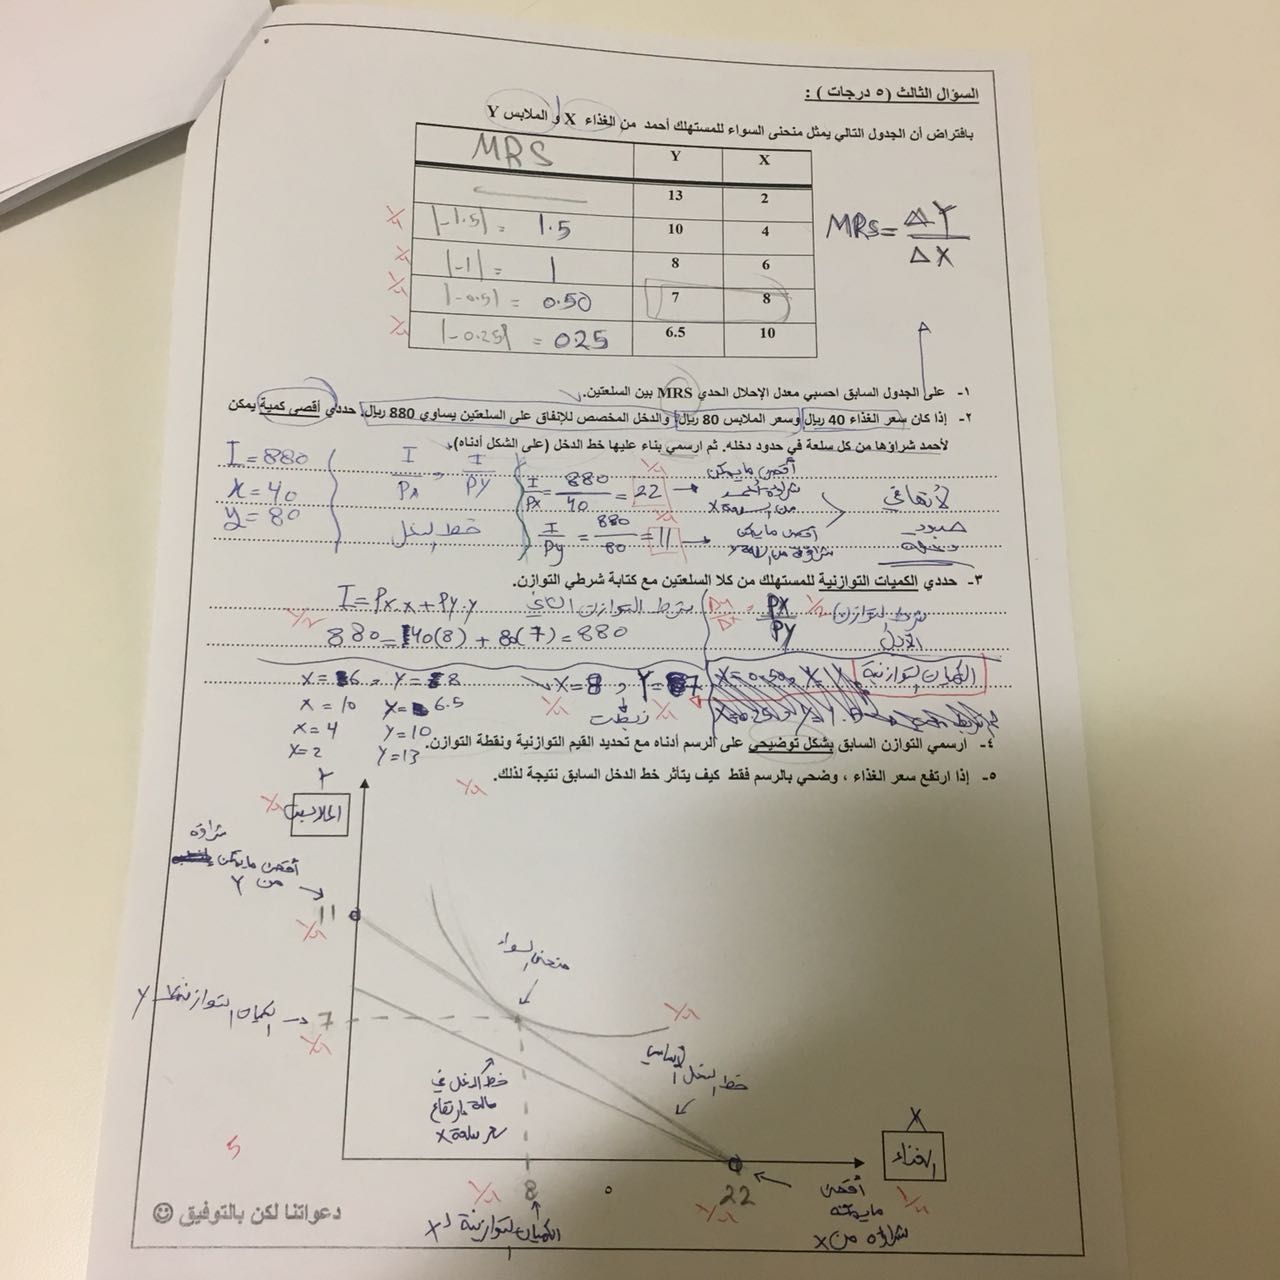 السؤال الثالث (٥ درجات) :
بافتراض أن الجدول التالي يمثل منحنى السواء للمستهلك أحمد من الغذاء X و الملابس Y
X Y MRS
2 13
4 10 |-1.5| = 1.5
6 8 |-1| = 1
8 7 |-0.5| = 0.50
10 6.5 |-0.25| = 0.25
MRS = ΔY / ΔX
١- على الجدول السابق احسبي معدل الإحلال الحدي MRS بين السلعتين.
٢- إذا كان سعر الغذاء 40 ريال وسعر الملابس 80 ريال، والدخل المخصص للإنفاق على السلعتين يساوي 880 ريال. حددي أقصى كمية يمكن
لأحمد شراؤها من كل سلعة في حدود دخله. ثم ارسمي بناء عليها خط الدخل (على الشكل أدناه).
I = 880
X = 40
y = 80
I/Px , I/Py
خط الدخل
I/Px = 880/40 = 22
أقصى ما يمكن شراؤه من X
I/Py = 880/80 = 11
أقصى ما يمكن
حدود
دخله
٣- حددي الكميات التوازنية للمستهلك من كلا السلعتين مع كتابة شرطي التوازن.
شرط التوازن الأول
ΔY/ΔX = PX/PY
شرط التوازن الثاني I = Px.x + Py.y
880 = 40(8) + 80(7) = 880
الكميات التوازنية
X = 8 , Y = 7
X = 6 , Y = 8
X = 10 Y = 6.5
X = 4 Y = 10
X = 2 Y = 13
٤- ارسمي التوازن السابق بشكل توضيحي على الرسم أدناه مع تحديد القيم التوازنية ونقطة التوازن.
٥- إذا ارتفع سعر الغذاء ، وضحي بالرسم فقط كيف يتأثر خط الدخل السابق نتيجة لذلك.
Y
الملابس
أقصى ما يمكن شراؤه
من Y
11
منحنى السواء
7
خط الدخل الأساسي
خط الدخل في
حالة ارتفاع
سعر سلعة X
X
الغذاء
8
22
الكميات التوازنية لـ X
أقصى
ما يمكنه
شراؤه من X
5
دعواتنا لكن بالتوفيق ☺